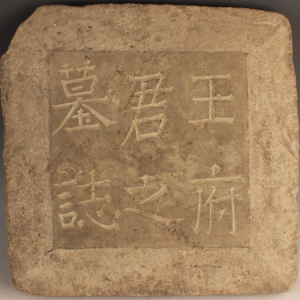 王府
君之
墓誌